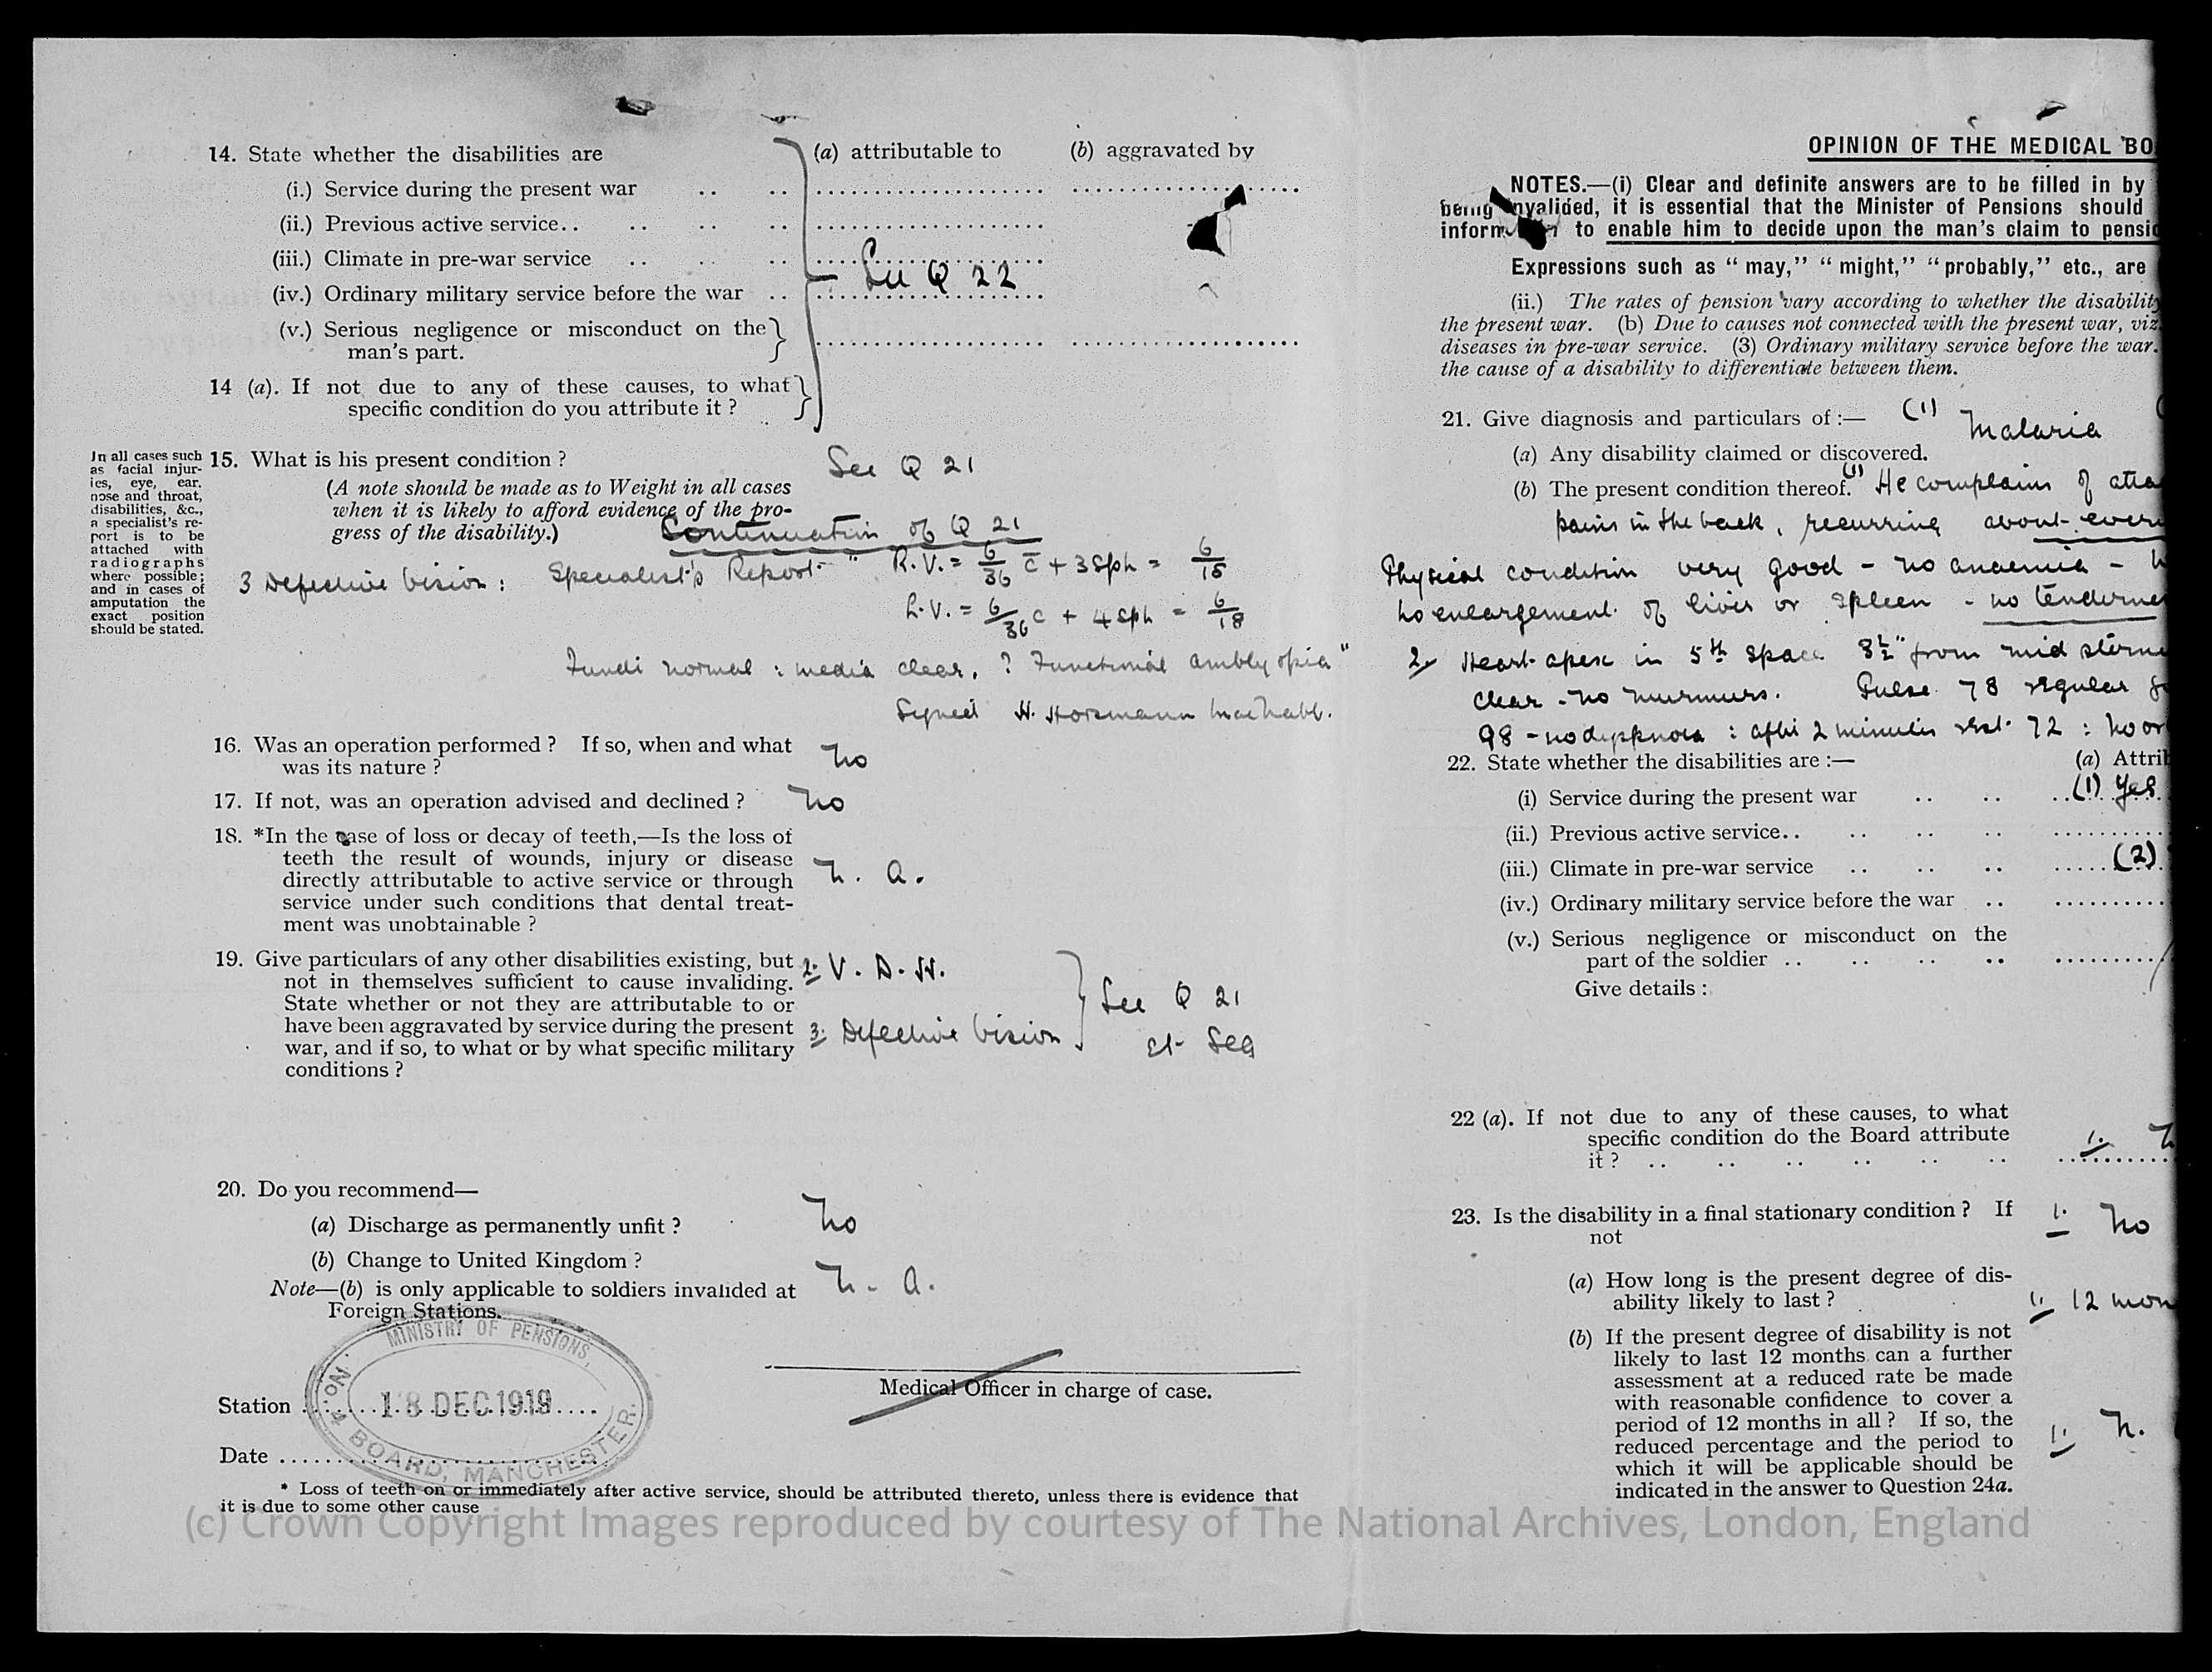 14. State whether the disabilities are (a) attributable to (b) aggravated by
(i.) Service during the present war
(ii.) Previous active service..
(iii.) Climate in pre-war service
(iv.) Ordinary military service before the war
See Q 22
(v.) Serious negligence or misconduct on the
man's part.
14 (a). If not due to any of these causes, to what
specific condition do you attribute it ?
In all cases such
as facial injur-
ies, eye, ear,
nose and throat,
disabilities, &c.,
a specialist's re-
port is to be
attached with
radiographs
where possible;
and in cases of
amputation the
exact position
should be stated.
15. What is his present condition ? See Q 21
(A note should be made as to Weight in all cases
when it is likely to afford evidence of the pro-
gress of the disability.)
Continuation of Q 21
3 Defective Vision : Specialist's Report " R.V. = 6/36 c̄ + 3 Sph = 6/18
L.V. = 6/36 c + 4 Sph = 6/18
Fundi normal : media clear. ? Functional amblyopia "
Signed H. Horsmann
16. Was an operation performed ? If so, when and what
was its nature ? No
17. If not, was an operation advised and declined ? No
18. *In the case of loss or decay of teeth,—Is the loss of
teeth the result of wounds, injury or disease
directly attributable to active service or through
service under such conditions that dental treat-
ment was unobtainable ?
N. A.
19. Give particulars of any other disabilities existing, but
not in themselves sufficient to cause invaliding.
State whether or not they are attributable to or
have been aggravated by service during the present
war, and if so, to what or by what specific military
conditions ?
2. V. D. H.
3. Defective Vision
See Q 21
et Seq
20. Do you recommend—
(a) Discharge as permanently unfit ? No
(b) Change to United Kingdom ?
Note—(b) is only applicable to soldiers invalided at
Foreign Stations.
N. A.
MINISTRY OF PENSIONS,
No. 4 BOARD, MANCHESTER.
18 DEC 1919
Medical Officer in charge of case.
Station
Date
* Loss of teeth on or immediately after active service, should be attributed thereto, unless there is evidence that
it is due to some other cause
OPINION OF THE MEDICAL BO
NOTES.—(i) Clear and definite answers are to be filled in by
being invalided, it is essential that the Minister of Pensions should
to enable him to decide upon the man's claim to pensio
Expressions such as "may," "might," "probably," etc., are
(ii.) The rates of pension vary according to whether the disability
the present war. (b) Due to causes not connected with the present war, viz.
diseases in pre-war service. (3) Ordinary military service before the war.
the cause of a disability to differentiate between them.
21. Give diagnosis and particulars of :— (1) Malaria
(a) Any disability claimed or discovered.
(b) The present condition thereof. (1) He complains of atta
pains in the back, recurring about every
Physical condition very good - no anaemia -
no enlargement of liver or spleen - no tenderne
2 Heart apex in 5th space 3½" from mid sternu
clear - no murmurs. Pulse 78 regular
98 - no dyspnoea : after 2 minutes rest 72 : no
22. State whether the disabilities are :— (a) Attrib
(i) Service during the present war (1) Yes
(ii.) Previous active service..
(iii.) Climate in pre-war service (2)
(iv.) Ordinary military service before the war
(v.) Serious negligence or misconduct on the
part of the soldier
Give details :
22 (a). If not due to any of these causes, to what
specific condition do the Board attribute
it ? 1.
23. Is the disability in a final stationary condition ? If
not
1. No
(a) How long is the present degree of dis-
ability likely to last ? 1. 12 mon
(b) If the present degree of disability is not
likely to last 12 months can a further
assessment at a reduced rate be made
with reasonable confidence to cover a
period of 12 months in all ? If so, the
reduced percentage and the period to
which it will be applicable should be
indicated in the answer to Question 24a.
1. N.
(c) Crown Copyright Images reproduced by courtesy of The National Archives, London, England